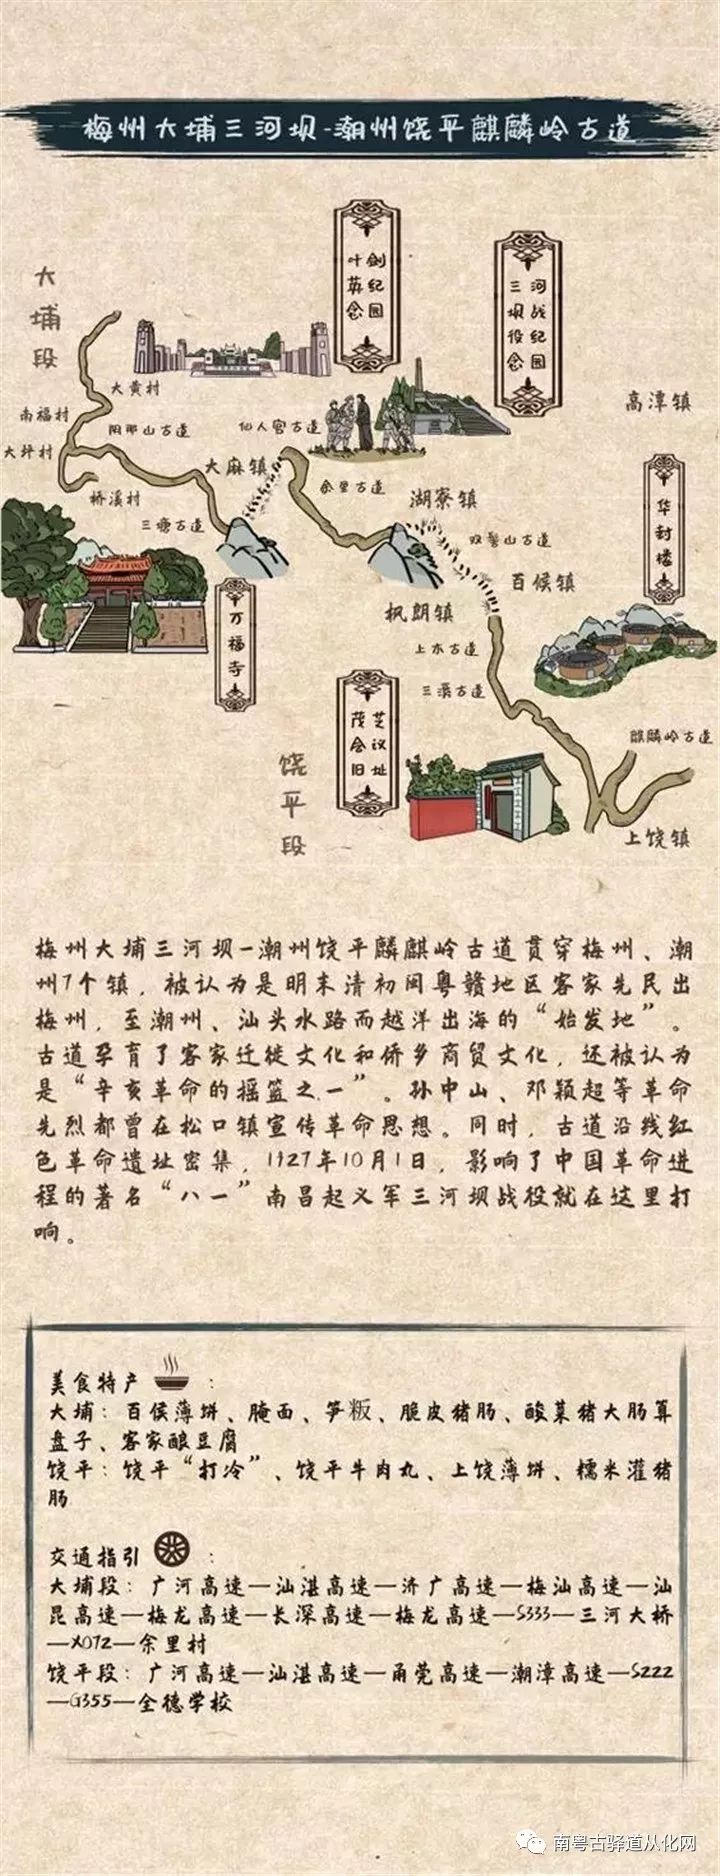 梅州大埔三河坝-潮州饶平麒麟岭古道
大埔段
叶剑英纪念园
三河坝战役纪念园
高潭镇
大黄村
南福村
阴那山古道
仙人宫古道
大坪村
大麻镇
余里古道
湖寮镇
华封楼
桥溪村
三塘古道
双髻山古道
百侯镇
枫朗镇
万福寺
上木古道
三溪古道
茂芝会议旧址
麒麟岭古道
饶平段
上饶镇
梅州大埔三河坝-潮州饶平麟麒岭古道贯穿梅州、潮
州7个镇，被认为是明末清初闽粤赣地区客家先民出
梅州，至潮州、汕头水路而越洋出海的“始发地”。
古道孕育了客家迁徙文化和侨乡商贸文化，还被认为
是“辛亥革命的摇篮之一”。孙中山、邓颖超等革命
先烈都曾在松口镇宣传革命思想。同时，古道沿线红
色革命遗址密集，1927年10月1日，影响了中国革命进
程的著名“八一”南昌起义军三河坝战役就在这里打
响。
美食特产：
大埔：百侯薄饼、腌面、笋粄、脆皮猪肠、酸菜猪大肠算
盘子、客家酿豆腐
饶平：饶平“打冷”、饶平牛肉丸、上饶薄饼、糯米灌猪
肠
交通指引：
大埔段：广河高速—汕湛高速—济广高速—梅汕高速—汕
昆高速—梅龙高速—长深高速—梅龙高速—S333—三河大桥
—X072—余里村
饶平段：广河高速—汕湛高速—甬莞高速—潮漳高速—S222
—G355—全德学校
南粤古驿道从化网